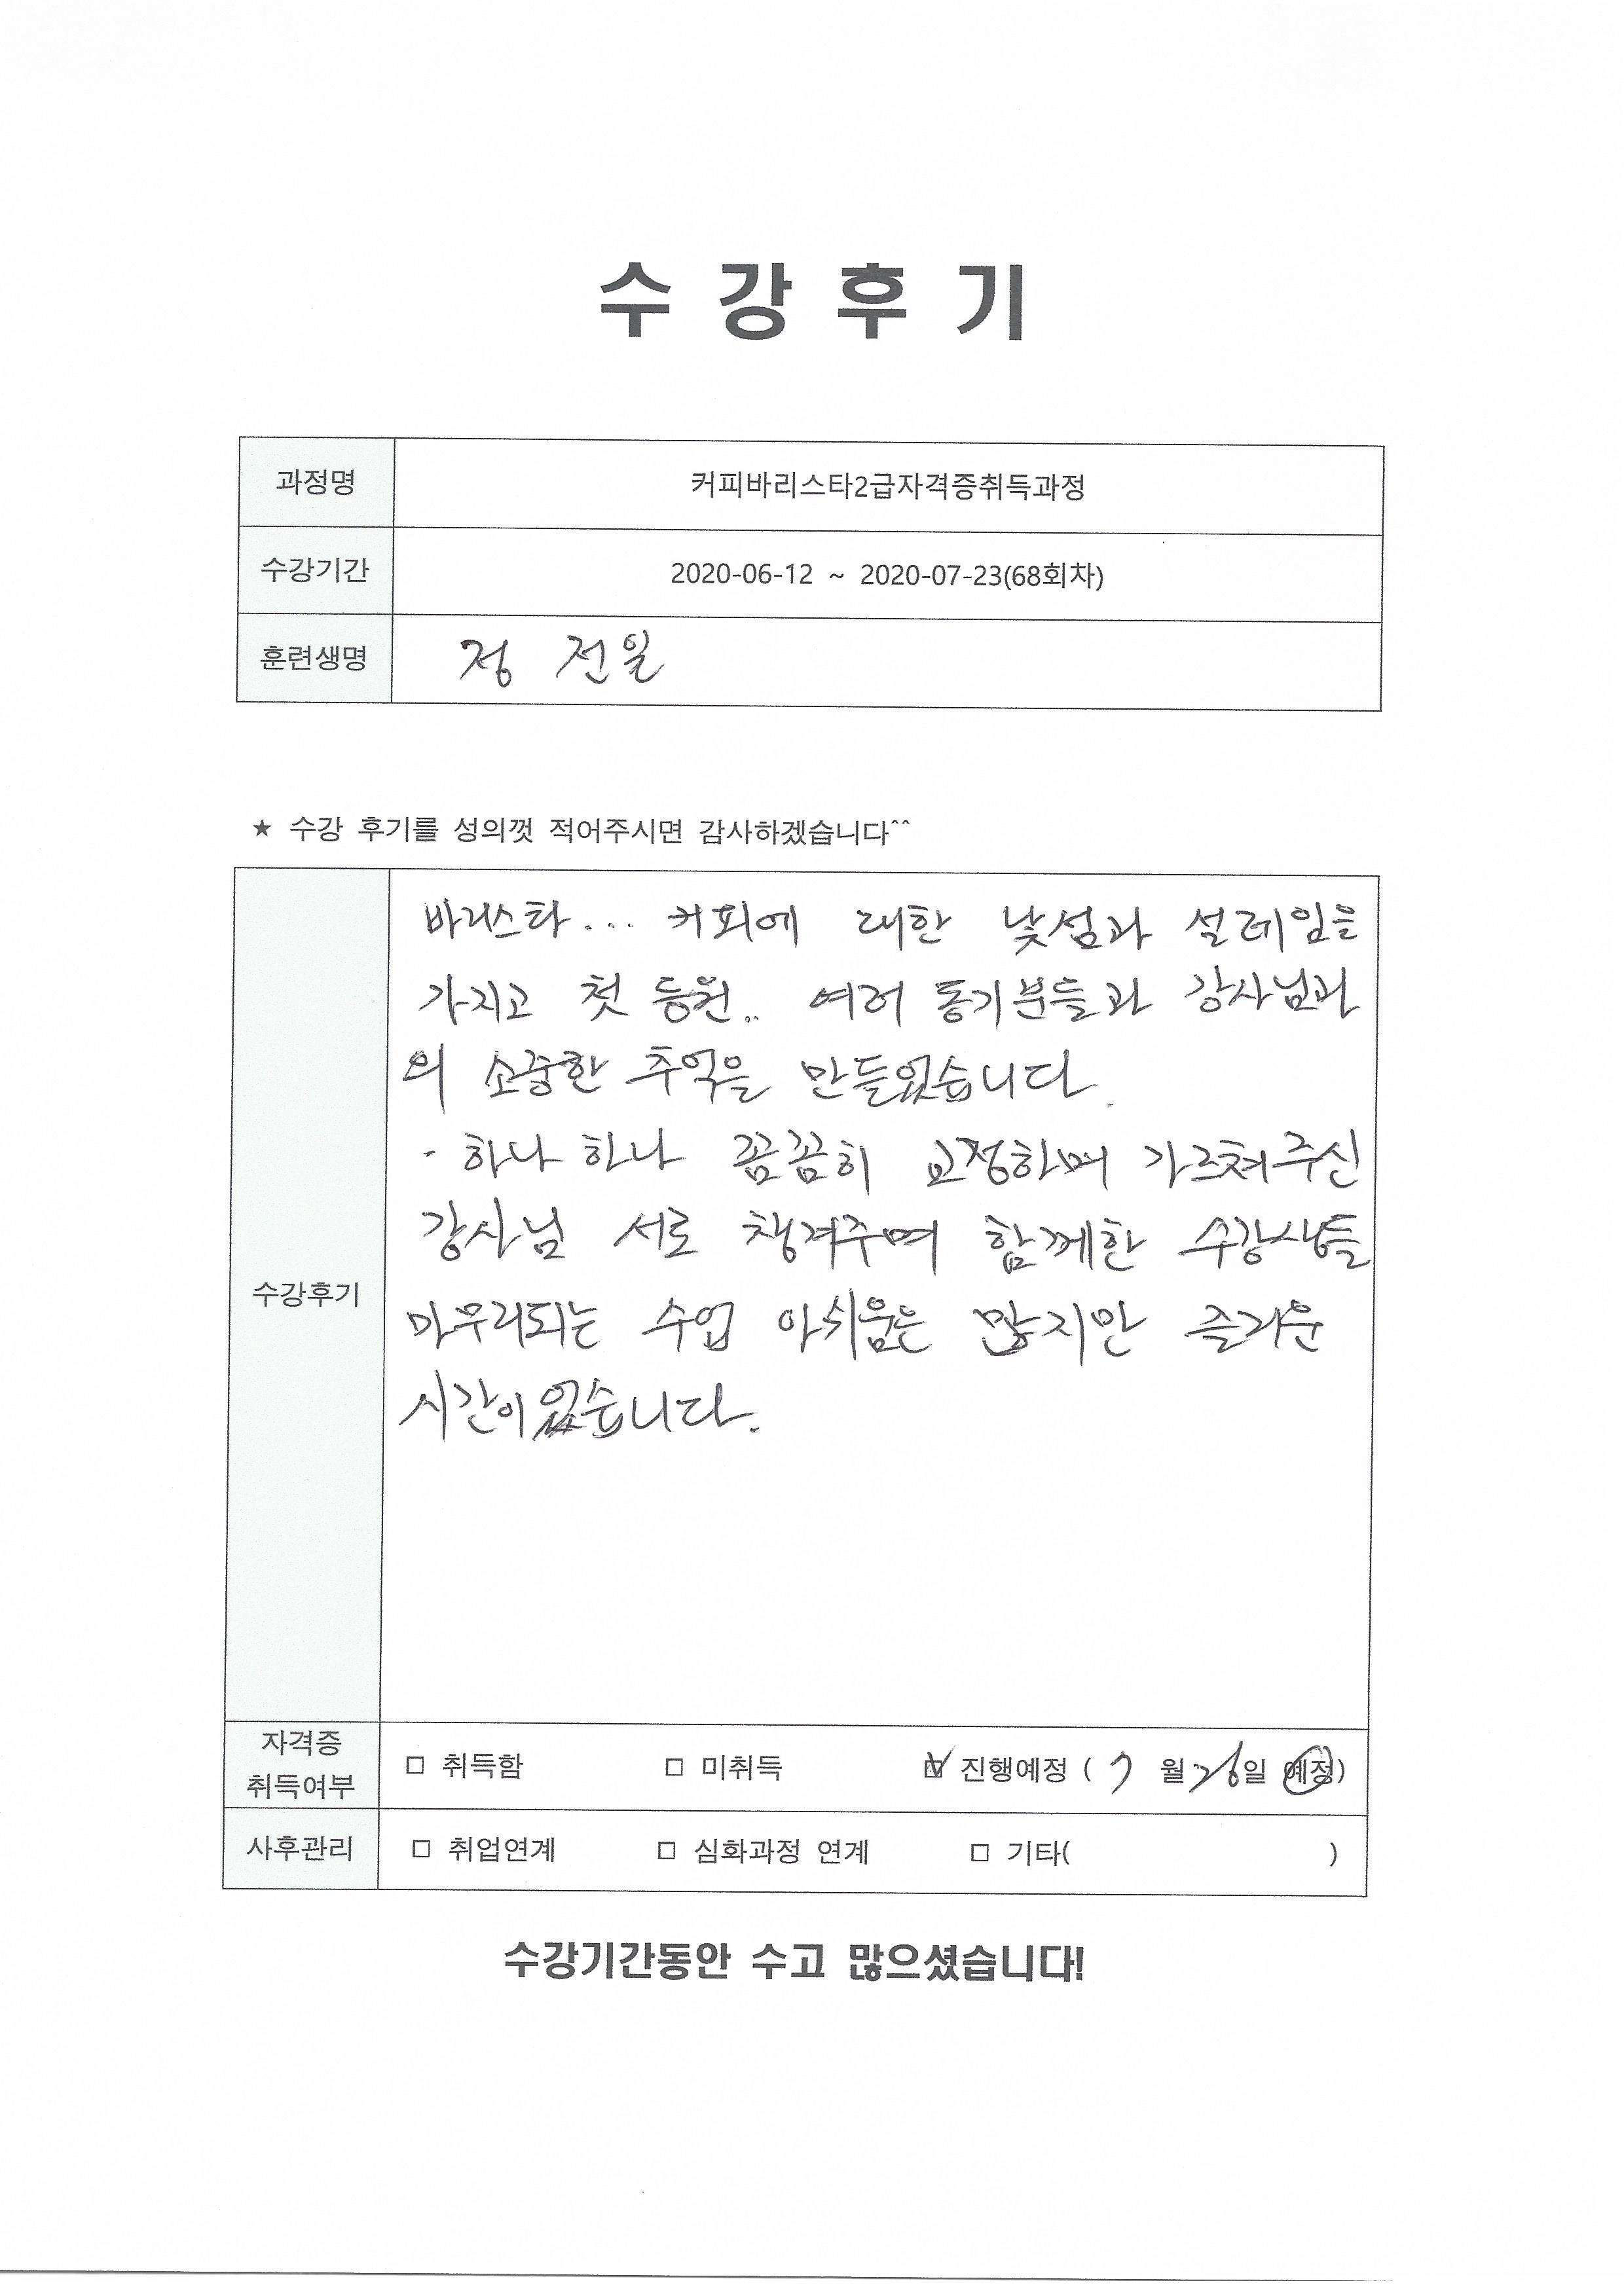 수 강 후 기
과정명 커피바리스타2급자격증취득과정
수강기간 2020-06-12 ~ 2020-07-23(68회차)
훈련생명 정 전일
★ 수강 후기를 성의껏 적어주시면 감사하겠습니다^^
바리스타... 커피에 대한 낯섬과 설레임을
가지고 첫 등원.. 여러 동기분들과 강사님과
의 소중한 추억을 만들었습니다.
- 하나 하나 꼼꼼히 교정하며 가르쳐주신
강사님 서로 챙겨주며 함께한 수강생들
수강후기
마무리되는 수업 아쉬움은 많지만 즐거운
시간이었습니다.
자격증
취득여부
□ 취득함 □ 미취득 ☑ 진행예정 ( 7 월 26일 예정)
사후관리 □ 취업연계 □ 심화과정 연계 □ 기타( )
수강기간동안 수고 많으셨습니다!